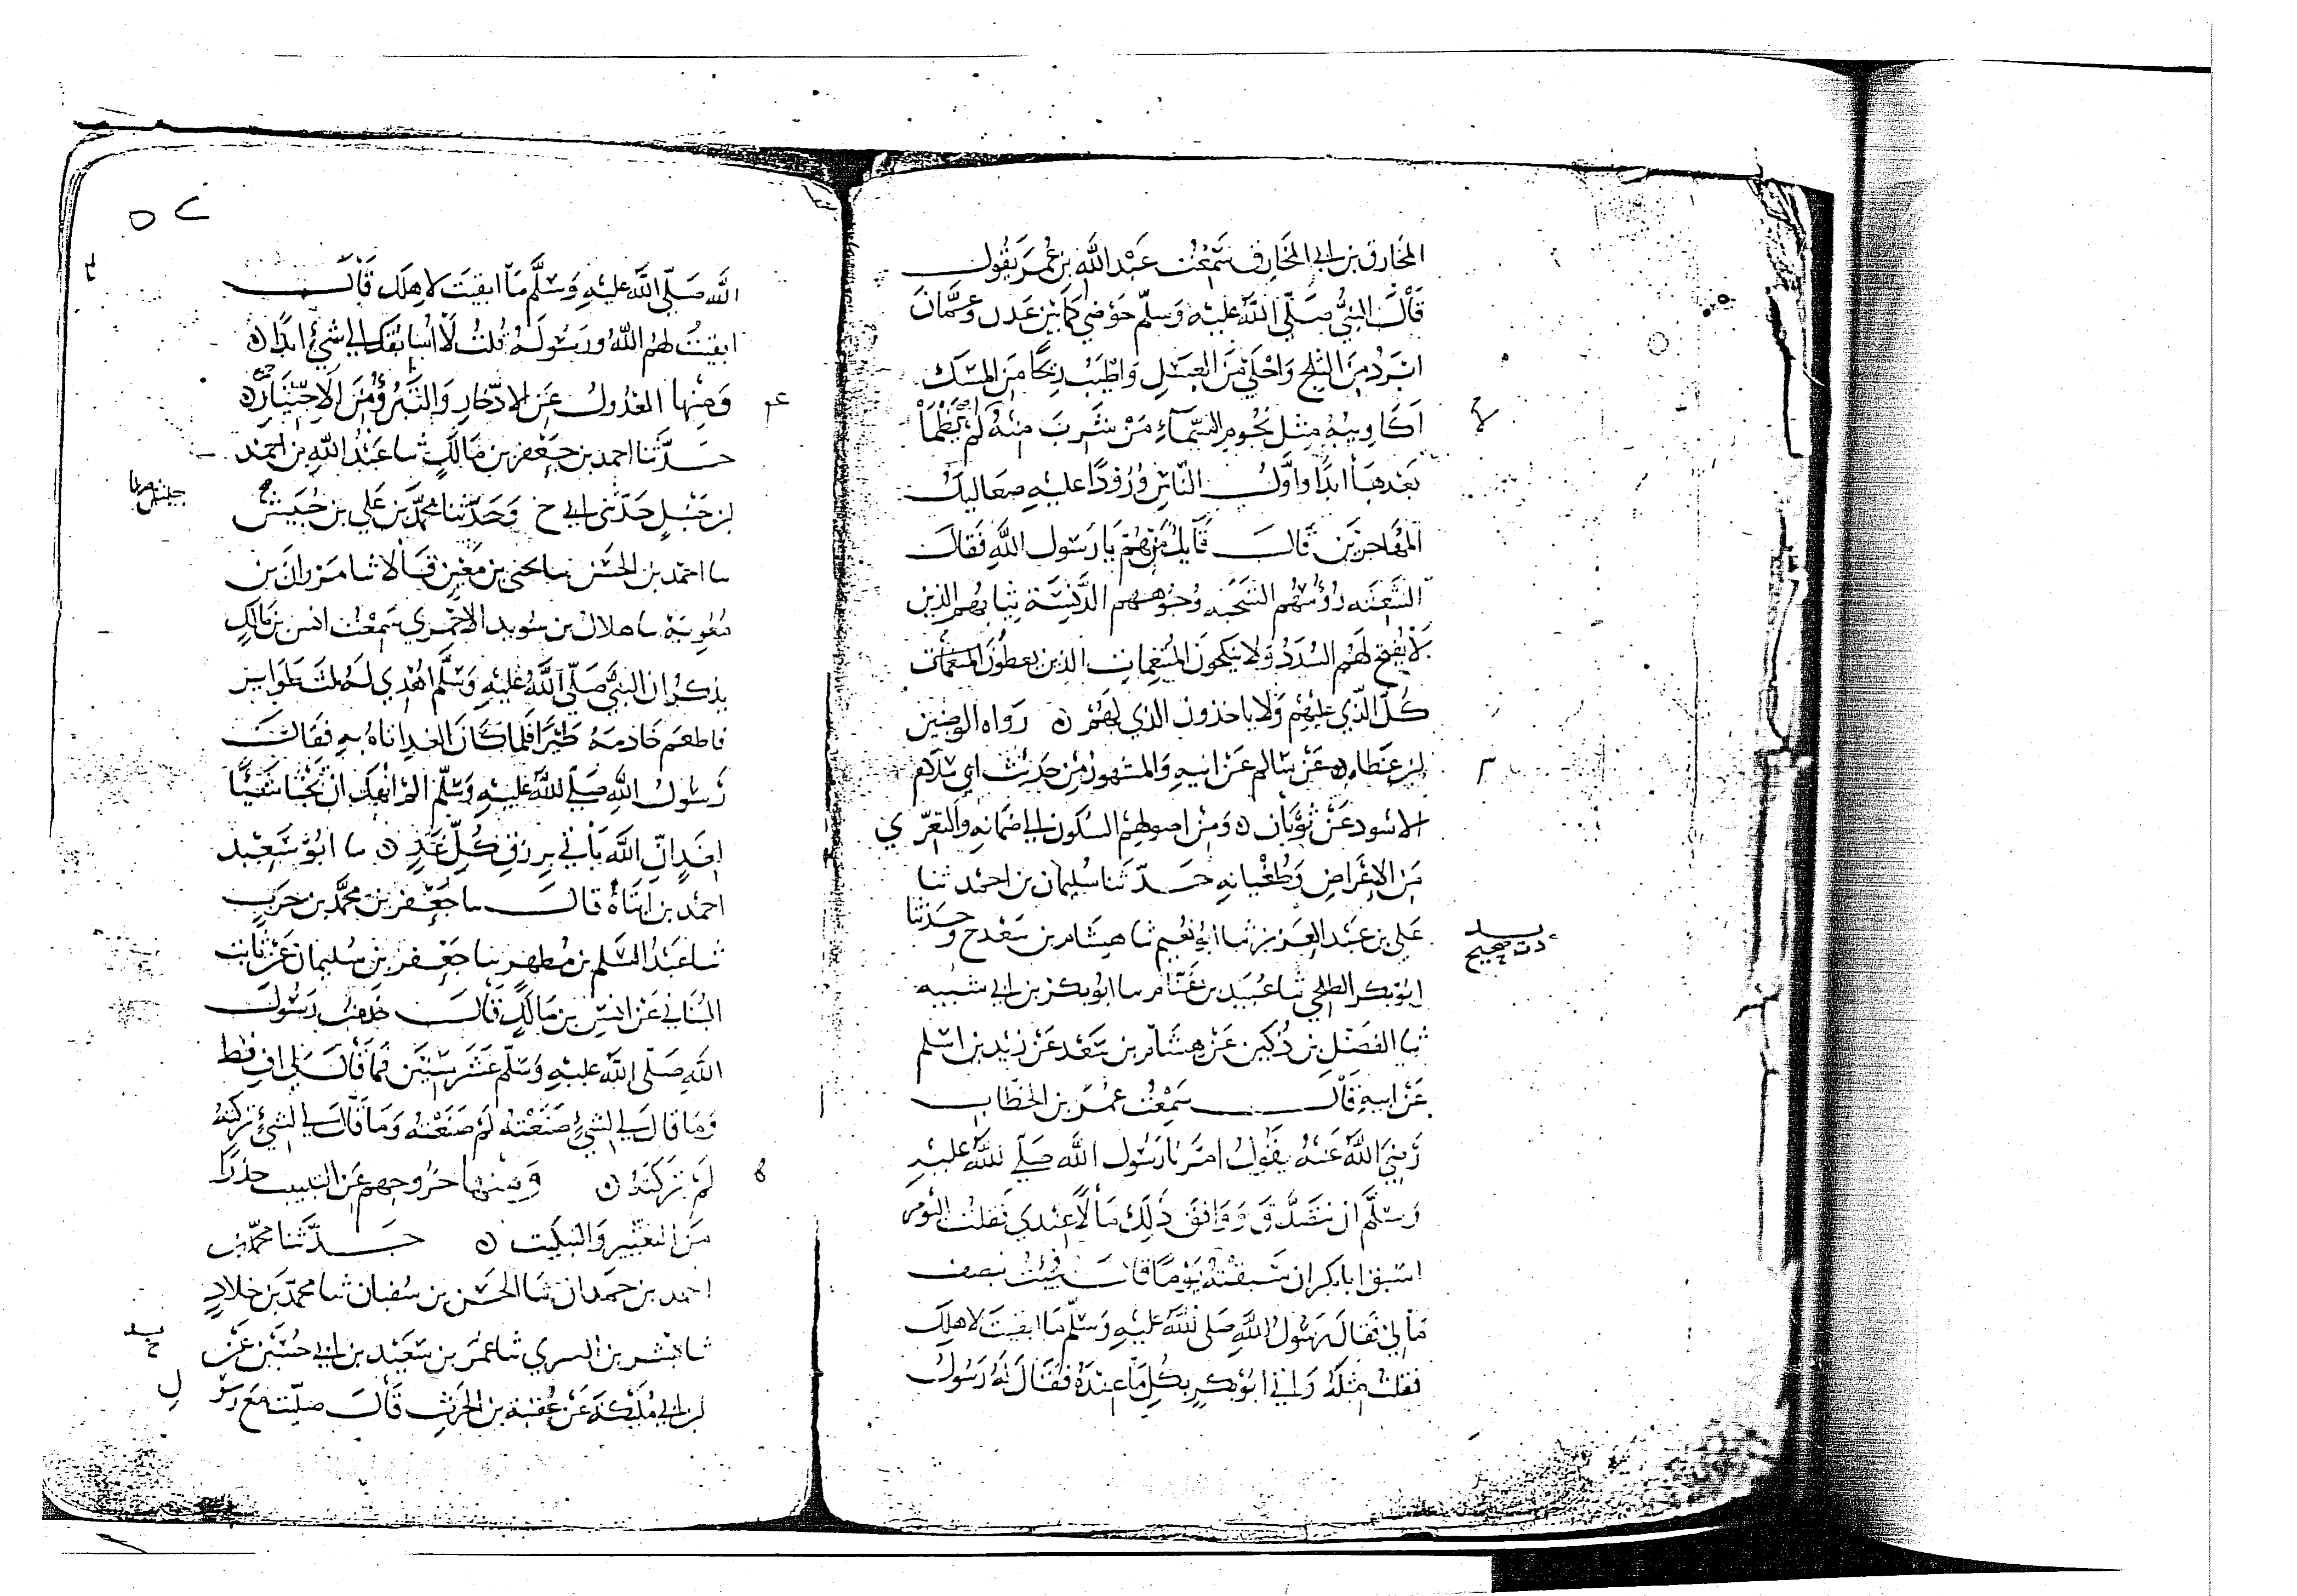 المخارق بن ابي المخارق سمعت عبد الله بن عمر يقول
قال النبي صلى الله عليه وسلم حوضي كما بين عدن وعمان
ابرد من الثلج واحلى من العسل واطيب ريحا من المسك
اكاويبه مثل نجوم السماء من شرب منه لم يظمأ
بعدها ابدا واول الناس ورودا عليه صعاليك
المهاجرين قال قايل من هم يا رسول الله فقال
الشعثه رؤسهم الشحبه وجوههم الدنسة ثيابهم الذين
لا يفتح لهم السدد ولا ينكحون المنعمات الذين يعطون
كل الذي عليهم ولا ياخذون الذي لهم ه رواه الوضين
بن عطاء ه عن سالم عن ابيه والمشهور من حديث ابي سلام
الاسود عن ثوبان ه ومن اصولهم السكون الى ضمانه والتعري
من الاغراض وطغيانه حدثنا سليمان بن احمد ثنا
علي بن عبد العزيز ثنا ابو نعيم ثنا هشام بن سعد ح وحدثنا
ابو بكر الطلحي ثنا عبيد بن غنام سا ابو بكر بن ابي شيبه
ثنا الفضل بن دكين عن هشام بن سعد عن زيد بن اسلم
عن ابيه قال سمعت عمر بن الخطاب
رضي الله عنه يقول امرنا رسول الله صلى الله عليه
وسلم ان نتصدق ووافق ذلك مالا عندي فقلت اليوم
اسبق ابا بكر ان سبقته يوما قال فجئت بنصف
مالي فقال رسول الله صلى الله عليه وسلم ما ابقيت لاهلك
فقلت مثله واتى ابو بكر بكل ما عنده فقال له رسول
د ت صحيح
٥٢
الله صلى الله عليه وسلم ما ابقيت لاهلك قال
ابقيت لهم الله ورسوله قلت لا اسابقك الى شيء ابدا ه
ومنها العدول عن الادخار والتبرؤ من الاختيار ه
حدثنا احمد بن جعفر بن مالك ثنا عبد الله بن احمد
بن حنبل حدثني ابي ح وحدثنا محمد بن علي بن حبيش
سا احمد بن الحسن سا يحيى بن معين قالا ثنا مروان بن
معوية سا هلال بن سويد الاحمري سمعت انس بن مالك
يذكر ان النبي صلى الله عليه وسلم اهدي له ثلث طواير
فاطعم خادمه طيرا فلما كان الغد اتاه به فقال
رسول الله صلى الله عليه وسلم الم انهك ان تخبا شيئا
لغد ان الله ياتي برزق كل غد ه سا ابو سعيد
احمد بن ابتاه قال سا جعفر بن محمد بن حرب
ثنا عبد السلم بن مطهر سا جعفر بن سليمان عن ثابت
البناني عن انس بن مالك قال خدمت رسول
الله صلى الله عليه وسلم عشر سنين فما قال لي اف قط
وما قال لي لشيء صنعته لم صنعته وما قال لي لشيء تركته
لم تركته ه ومنها خروجهم عن البيت حذرا
من التغيير والتبكيت ه حدثنا محمد بن
احمد بن حمدان ثنا الحسن بن سفيان ثنا محمد بن خلاد
ثنا بشر بن السري ثنا عمر بن سعيد بن ابي حسين عن
بن ابي مليكه عن عقبه بن الحرث قال صليت مع رسو
ل